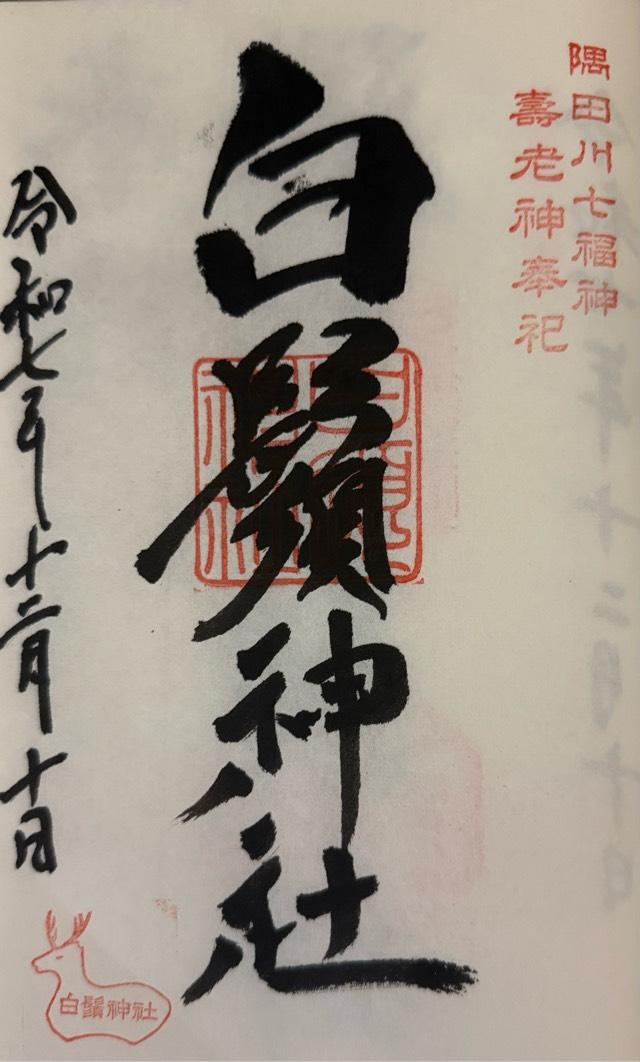 隅田川七福神
壽老神奉祀
白鬚神社
白鬚神社
令和七年十二月十日
白鬚神社